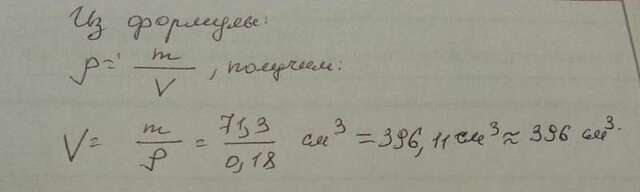 Из формулы:
ρ = m/V, получим:
V = m/ρ = 71,3/0,18 см³ = 396,11 см³ ≈ 396 см³.